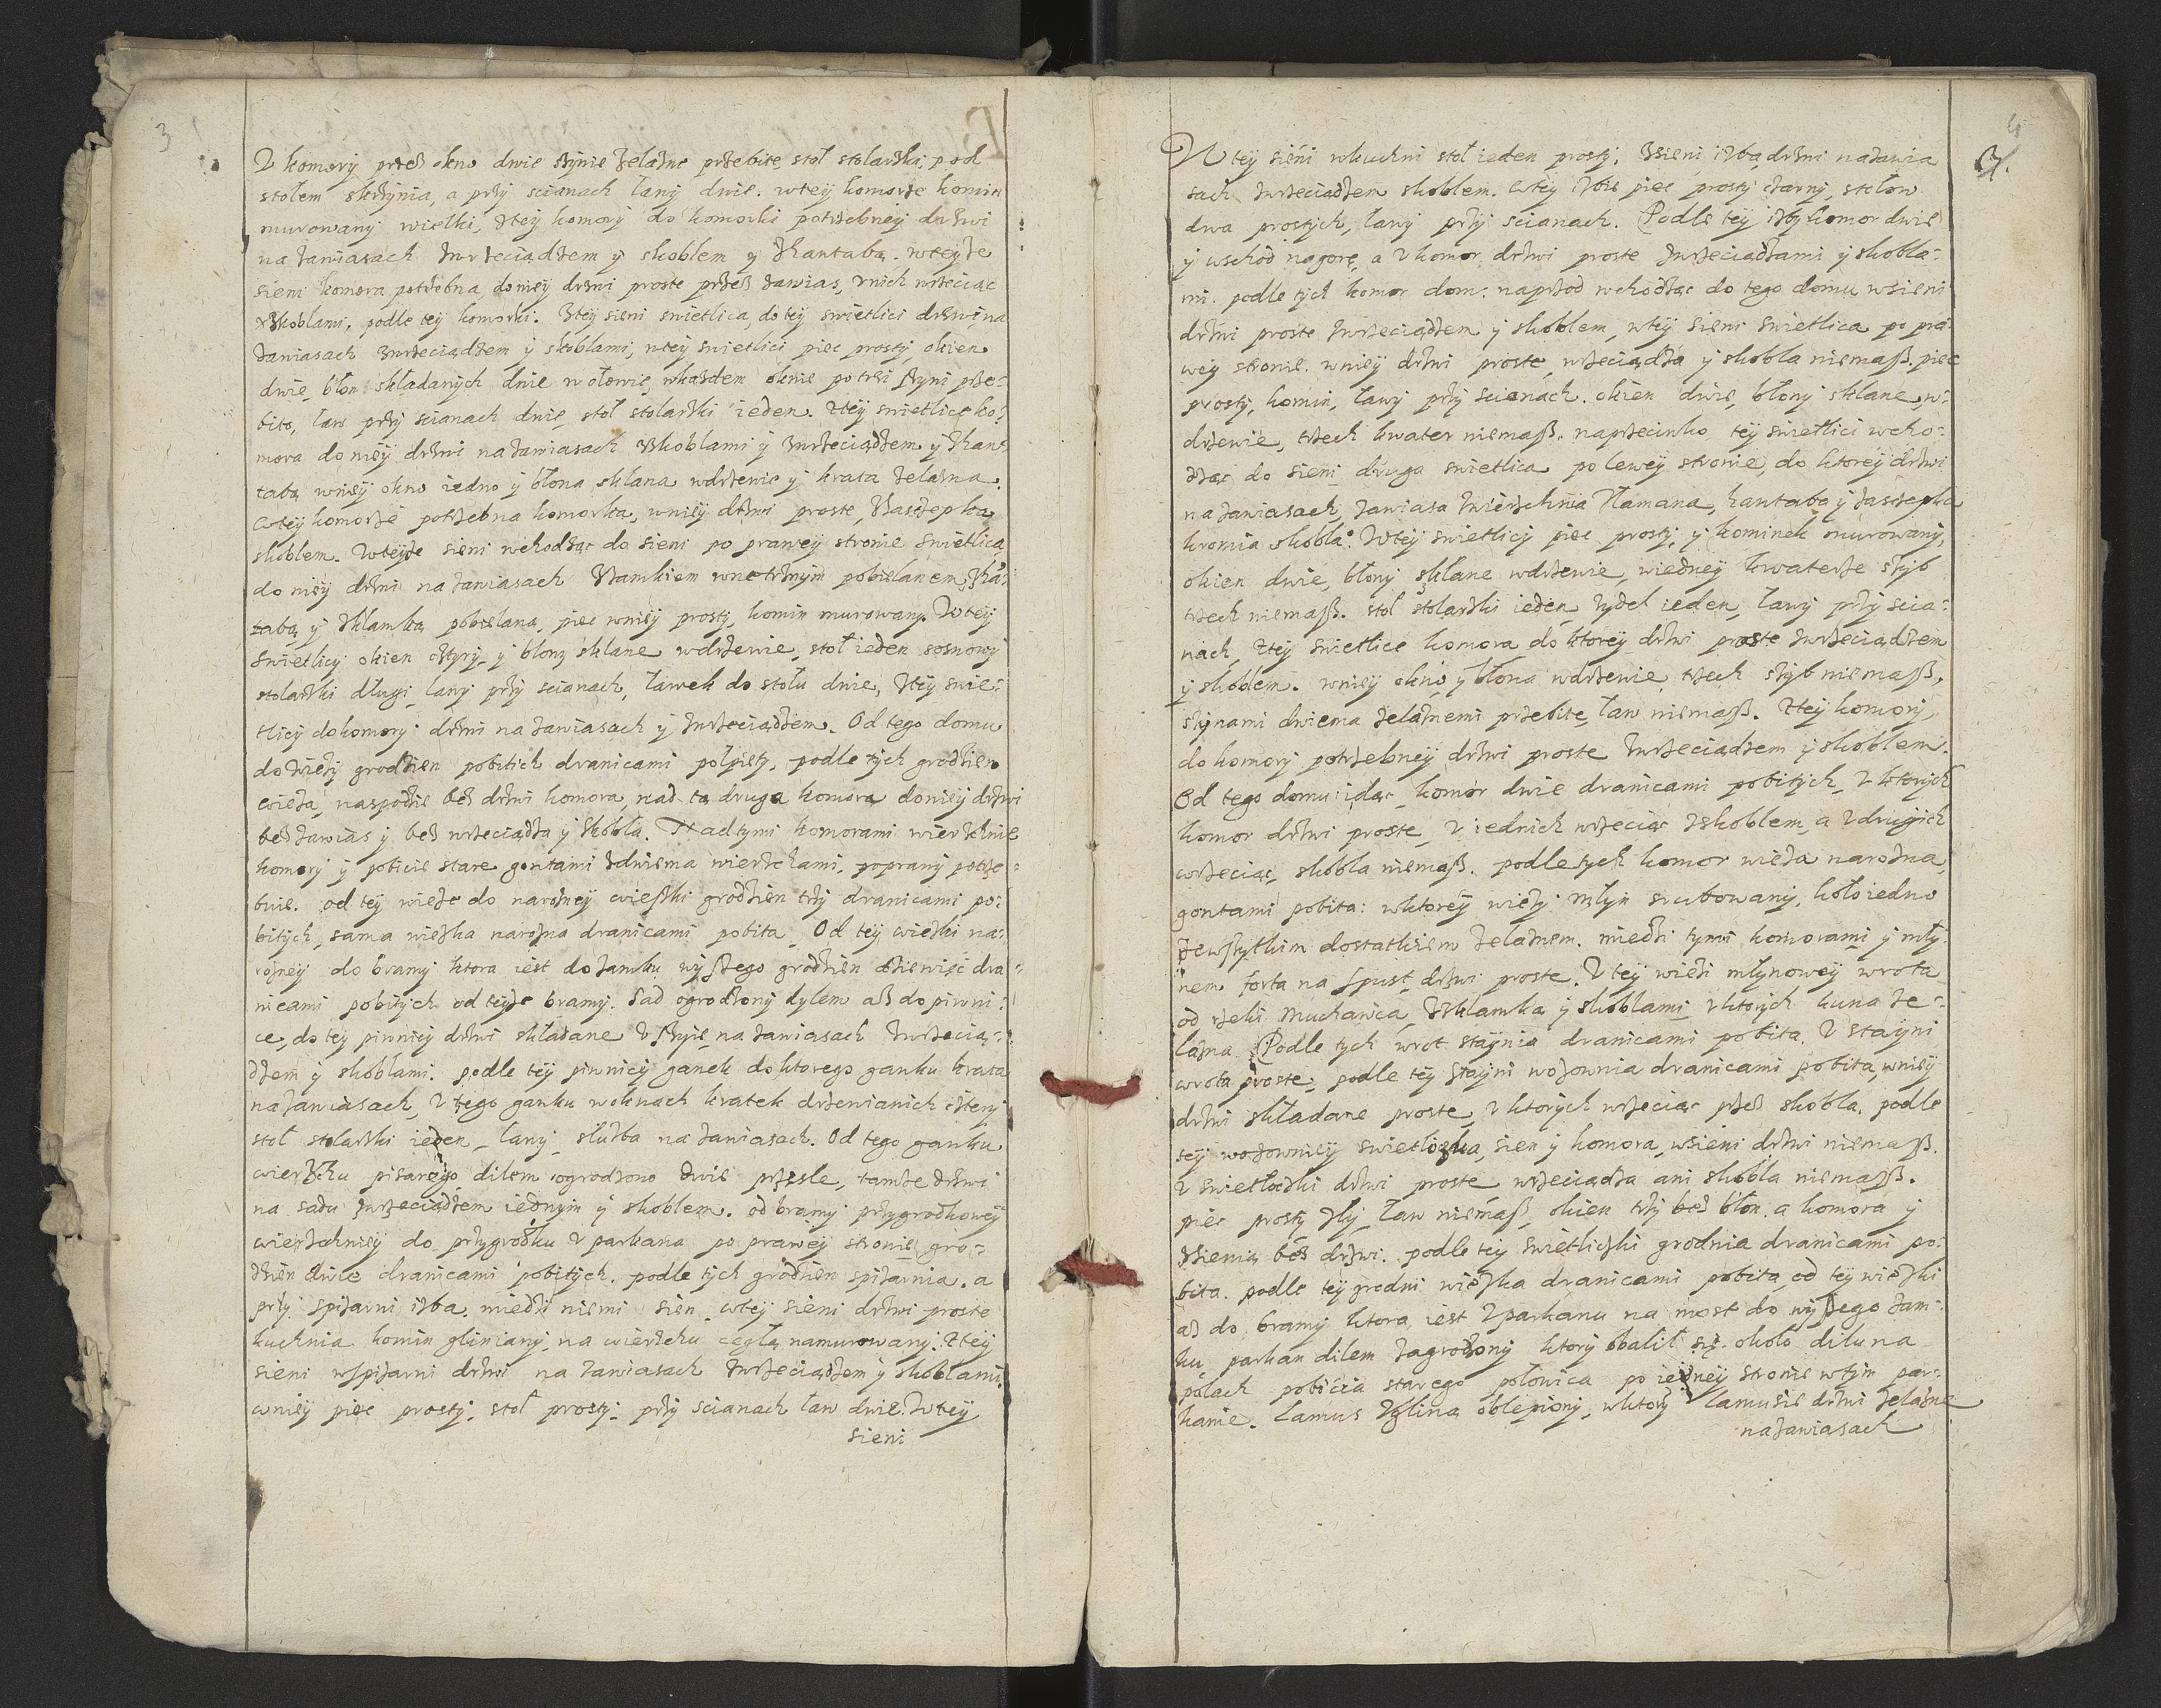 3
V komory przes okno dwie sztynie żelazne przebite, stoł stolarski, pod
stołem skrzynia, a przy scianach ławy dwie. wtey komorze komin
murowany wielki, ztey komory do komorki potrzebney drzwi
na zawiasach zwrzeciądzem y skoblem y zkantabą. wteyże
sieni komora potrzebna, do niey drzwi proste przes zawias, v nich wrzeciąc
yskoblami, podle tey komorki. Ztey sieni swietlica, do tey swietlici drzwi na
zawiasach zwrzeciądzem y skoblami, wtey swietlici piec prosty, okien
dwie, błon składanych dwie w ołowie, wkażdem oknie po trzi sztyni prze-
bito, ław przy scianach dwie, stoł stolarski ieden. Ztey swietlice ko-
mora do niey drzwi na zawiasach zskoblami y zwrzeciądzem y zkan-
tabą, wniey okno iedno y błona sklana wdrzewie y krata żelazna.
wtey komorze potrzebna komorka, wniey drzwi proste, zasczepką
skoblem. Wteyże sieni wchodząc do sieni po prawey stronie swietlica
do niey drzwi na zawiasach zzamkiem wnetrznym pobielanem, zkan-
tabą y zklamką pobielaną, piec wniey prosty, komin murowany. Wtey
swietlicy okien cztyry, y błony sklane wdrzewie, stoł ieden sosnowy
stolarski długi, ławy przy scianach, ławek do stołu dwie, Ztey swie-
tlicy do komory drzwi na zawiasach y zwrzeciądzem. Od tego domu
do wieży grodzien pobitich dranicami połpięty, podle tych grodzien
wieża, naspodzie bes drzwi komora, nad tą druga komora do niey drzwi
bes zawias y bes wrzeciądza y skobla. Nad tymi komorami wierzchnie
komory y pobicie stare gontami zdwiema wierzchami, poprawy potrze-
buie. od tey wieże do narożney wieszki grodzien trzy dranicami po-
bitych, sama wieżka narożna dranicami pobita, Od tey wieżki na-
rożney do bramy ktora iest do zamku wyższego grodzien dziewięć dra-
nicami pobitych od teyże bramy. Sad ogrodzony dylem aż do piwni-
ce, do tey piwnicy drzwi składane v szyie, na zawiasach zwrzecią-
dzem y skoblami. podle tey piwnicy ganek do ktorego ganku krata
na zawiasach, v tego ganku w oknach kratek drzewianich cztery
stoł stolarski ieden, ławy, służba na zawiasach. Od tego ganku
wierzchu pisanego dilem ogrodzono dwie przęsle, tamże drzwi
na sadu zwrzeciądzem iednym y skoblem. od bramy przygrodkowey
wierzchniey do przygrodku v parkana po prawey stronie gro-
dzien dwie dranicami pobitych. podle tych grodzien spiżarnia, a
przy spiżarni izba, miedzi niemi sien, wtey sieni drzwi proste
kuchnia komin gliniany, na wierzchu cegłą namurowany. Ztey
sieni wspiżarni drzwi na zawiasach zwrzeciądzem y skoblami,
wniey piec prosty, stoł prosty, przy scianach ław dwie. Wtey
sieni
4
W tey sieni wkuchni stoł ieden prosty, Zsieni izba, drzwi na zawia
sach zwrzeciądzem skoblem. wtey izbie piec prosty czarny, stołow
dwa prostych, ławy przy scianach. Podle tey izby komor dwie
y wschod na gorę, a v komor drzwi proste zwrzeciądzami y skobla-
mi. podle tych komor dom: naprzod wchodząc do tego domu wsieni
drzwi proste zwrzeciądzem y skoblem, wtey sieni swietlica po pra-
wey stronie, wniey drzwi proste, wrzeciądza y skobla niemasz. piec
prosty, komin, ławy przy scienach. okien dwie, błony sklane, w-
drzewie, trzech kwater niemasz. naprzeciwko tey swietlici wcho-
dząc do sieni druga swietlica po lewey stronie, do ktorey drzwi
na zawiasach, zawiasa zwierzchnia złamana, kantaba y zasczepka
kromia skobla. Wtey swietlicy piec prosty, y kominek murowany,
okien dwie, błony sklane wdrzewie, wiedney kwaterze szyb
trzech niemasz. stoł stolarski ieden, zydel ieden, ławy przy scia-
nach, Ztey swietlice komora do ktorey drzwi proste zwrzeciądzem
y skoblem. wniey okno y błona wdrzewie, trzech szyb niemasz.
sztynami dwiema żelaznemi przebite, ław niemasz. Ztey komory,
do komory potrzebney drzwi proste zwrzeciądzem y skoblem.
Od tego domu idąc, komor dwie dranicami pobitych, v ktorych
komor drzwi proste, v iednich wrzeciąc zskoblem, a v drugich
wrzeciąc, skobla niemasz. podle tych komor wieża narożna,
gontami pobita: wktorey wieży młyn srubowany, koło iedno
zewszytkim dostatkiem żelaznem. miedzi tymi komorami y mły-
nem forta na spust, drzwi proste. V tey wieżi młynowey wrota
od rzeki Muchawca, zklamką y skoblami, v ktorych kuna że-
lazna. Podle tych wrot staynia dranicami pobita, V stayni
wrota proste, podle tey stayni wozownia dranicami pobita, wniey
drzwi składane proste, v ktorych wrzeciąc przes skobla. podle
tey wozowniey swietliczka, sien y komora, wsieni drzwi niemasz.
v swietliczki drzwi proste, wrzeciądza ani skobla niemasz.
piec prosty zły, ław niemasz, okien trzy bes błon. a komora y
zsienią bes drzwi. podle tey swietliczki grodnia dranicami po-
bita. podle tey grodni wieżka dranicami pobita, od tey wieżki
aż do bramy ktora iest v parkanu na most do wyższego zam-
ku parkan dilem zagrodzony ktory obalił się. około dilu na
polach pobicia starego połowica po iedney stronie wtym par-
kanie. Lamus zgliną oblepiony, wktory lamusie drzwi żelazne
na zawiasach